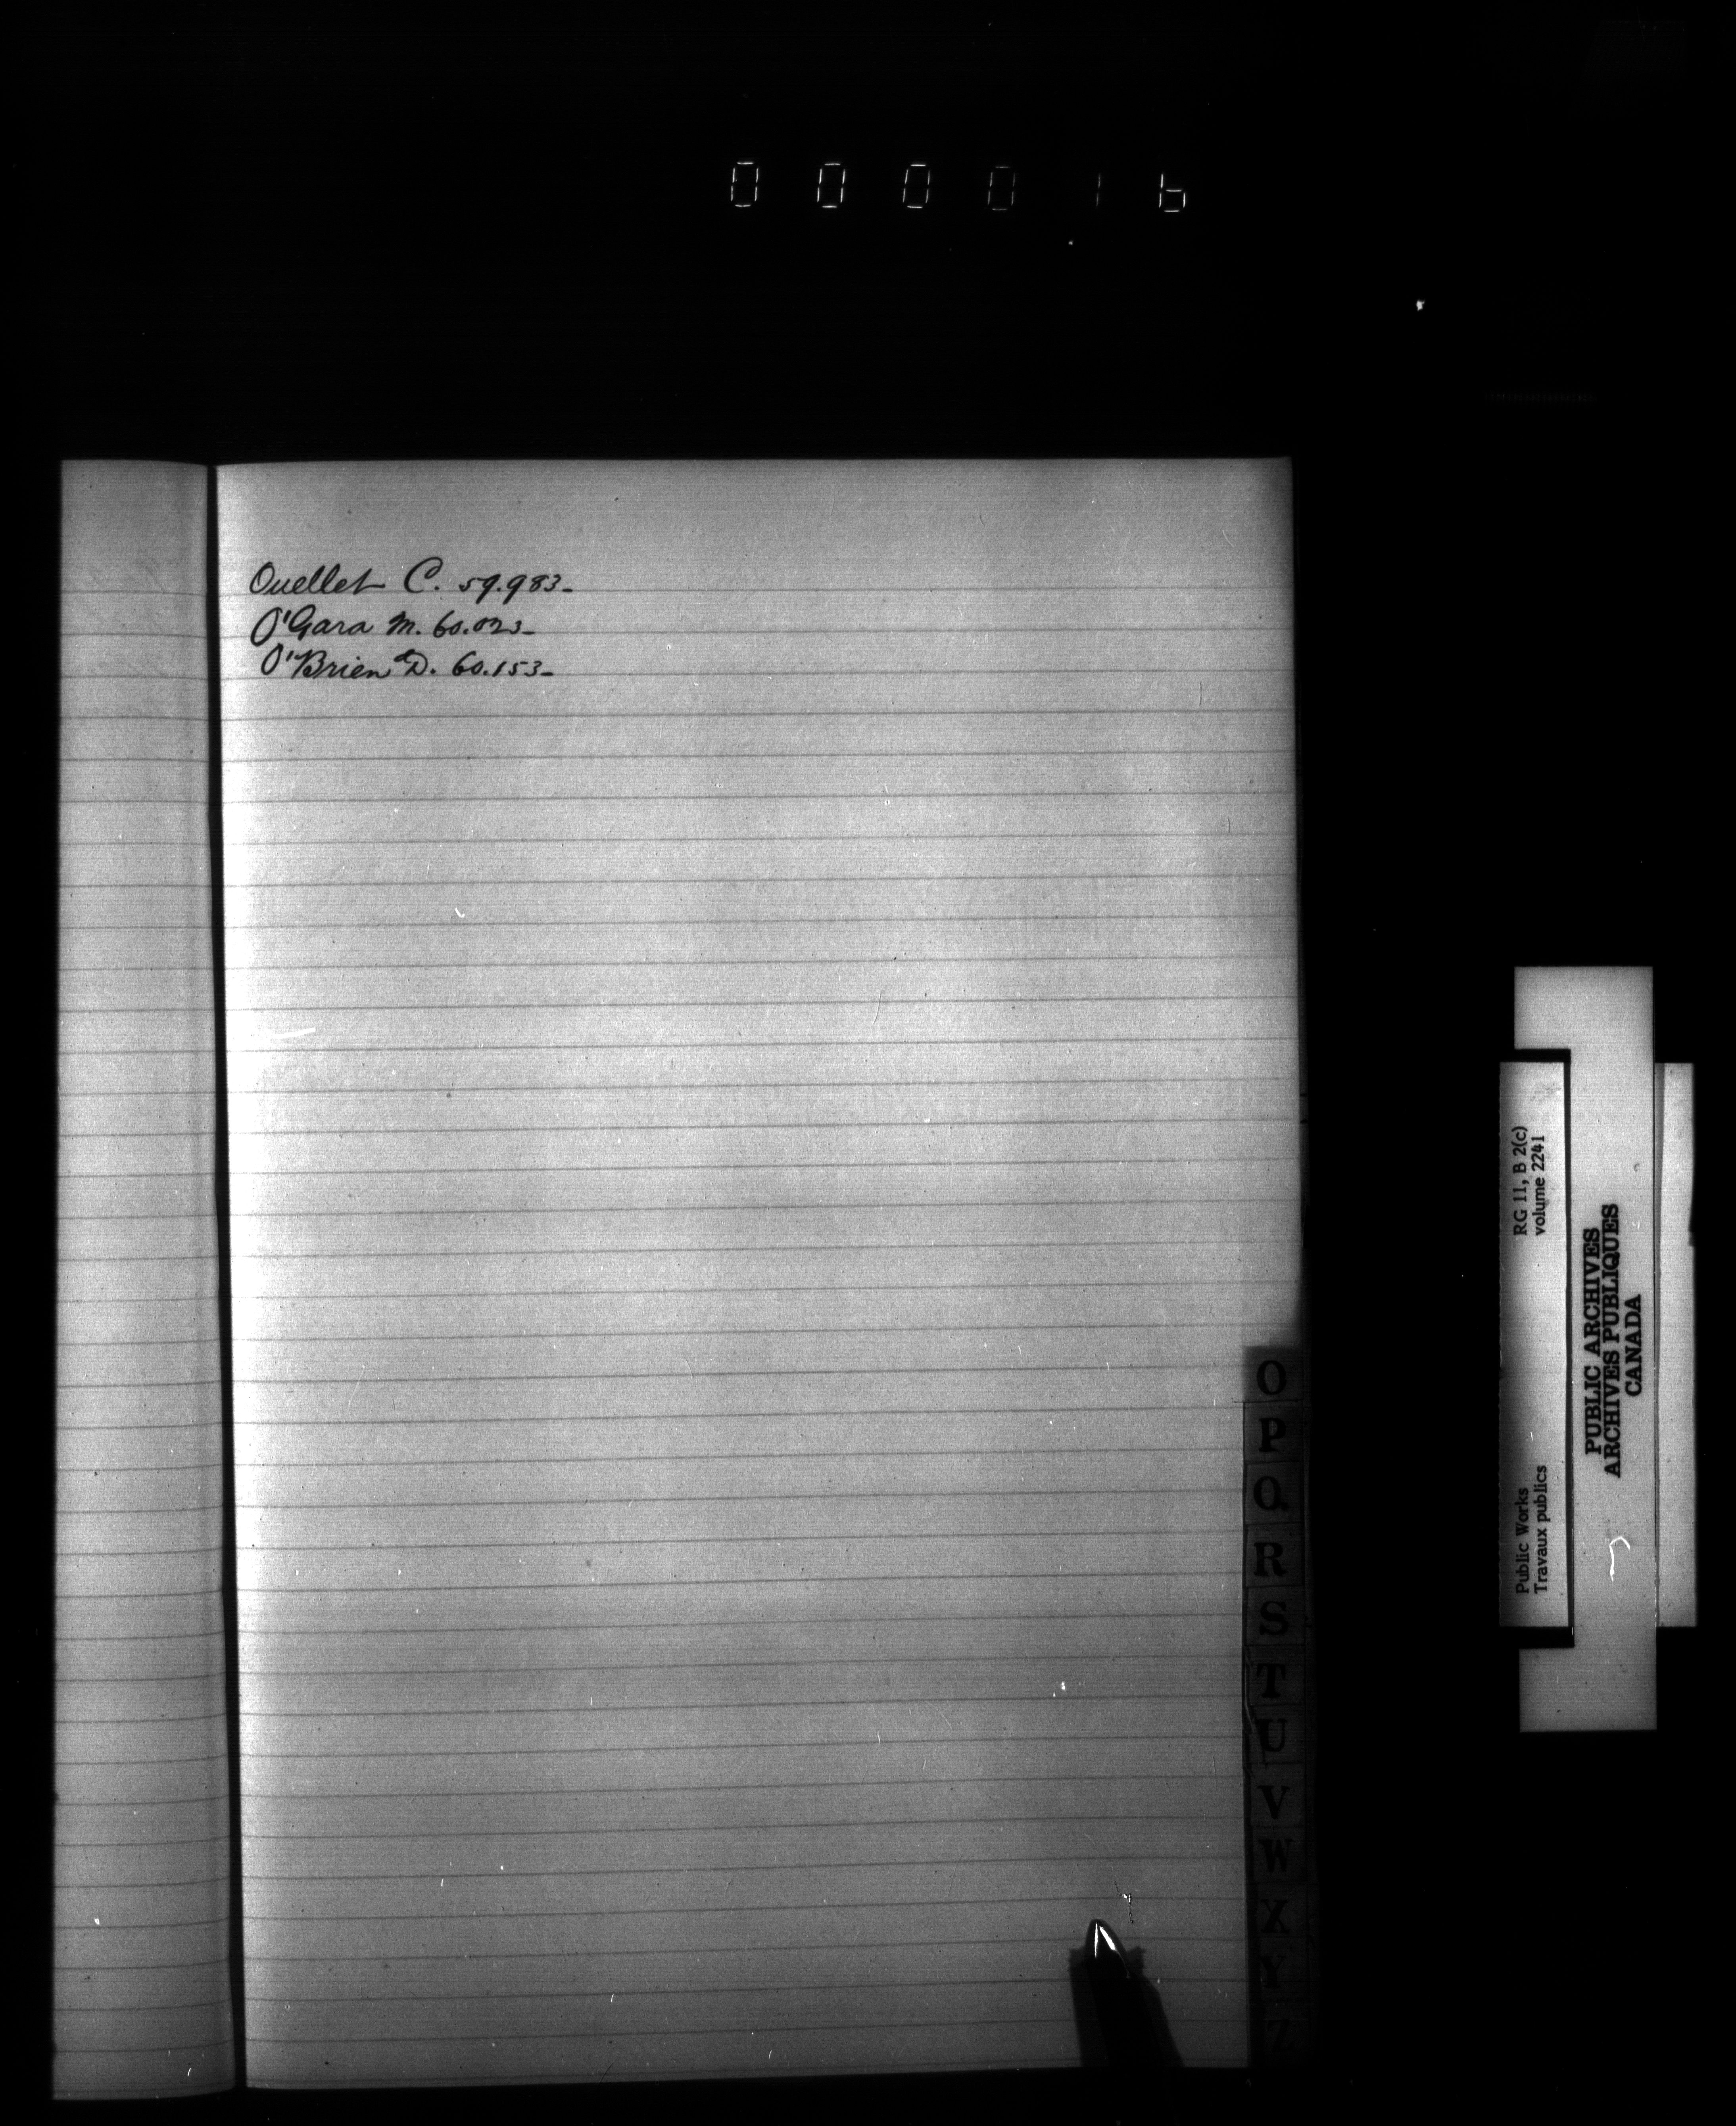 000016
Ouellet C. 59.983-
O'Gara M. 60.023-
O'Brien D. 60.153-
O
P
Q
R
S
T
U
V
W
X
Y
Z
RG 11, B 2(c)
volume 2241
Public Works
Travaux publics
PUBLIC ARCHIVES
ARCHIVES PUBLIQUES
CANADA